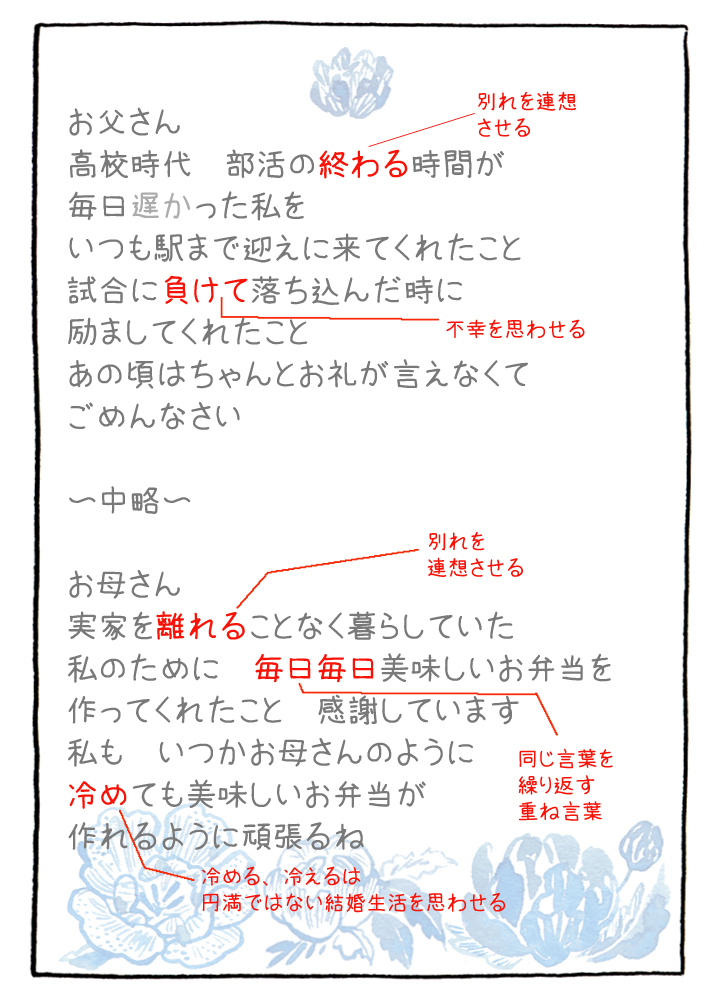 別れを連想
させる
お父さん
高校時代　部活の終わる時間が
毎日遅かった私を
いつも駅まで迎えに来てくれたこと
試合に負けて落ち込んだ時に
不幸を思わせる
励ましてくれたこと
あの頃はちゃんとお礼が言えなくて
ごめんなさい
〜中略〜
別れを
連想させる
お母さん
実家を離れることなく暮らしていた
私のために　毎日毎日美味しいお弁当を
作ってくれたこと　感謝しています
私も　いつかお母さんのように
同じ言葉を
繰り返す
重ね言葉
冷めても美味しいお弁当が
作れるように頑張るね
冷める、冷えるは
円満ではない結婚生活を思わせる